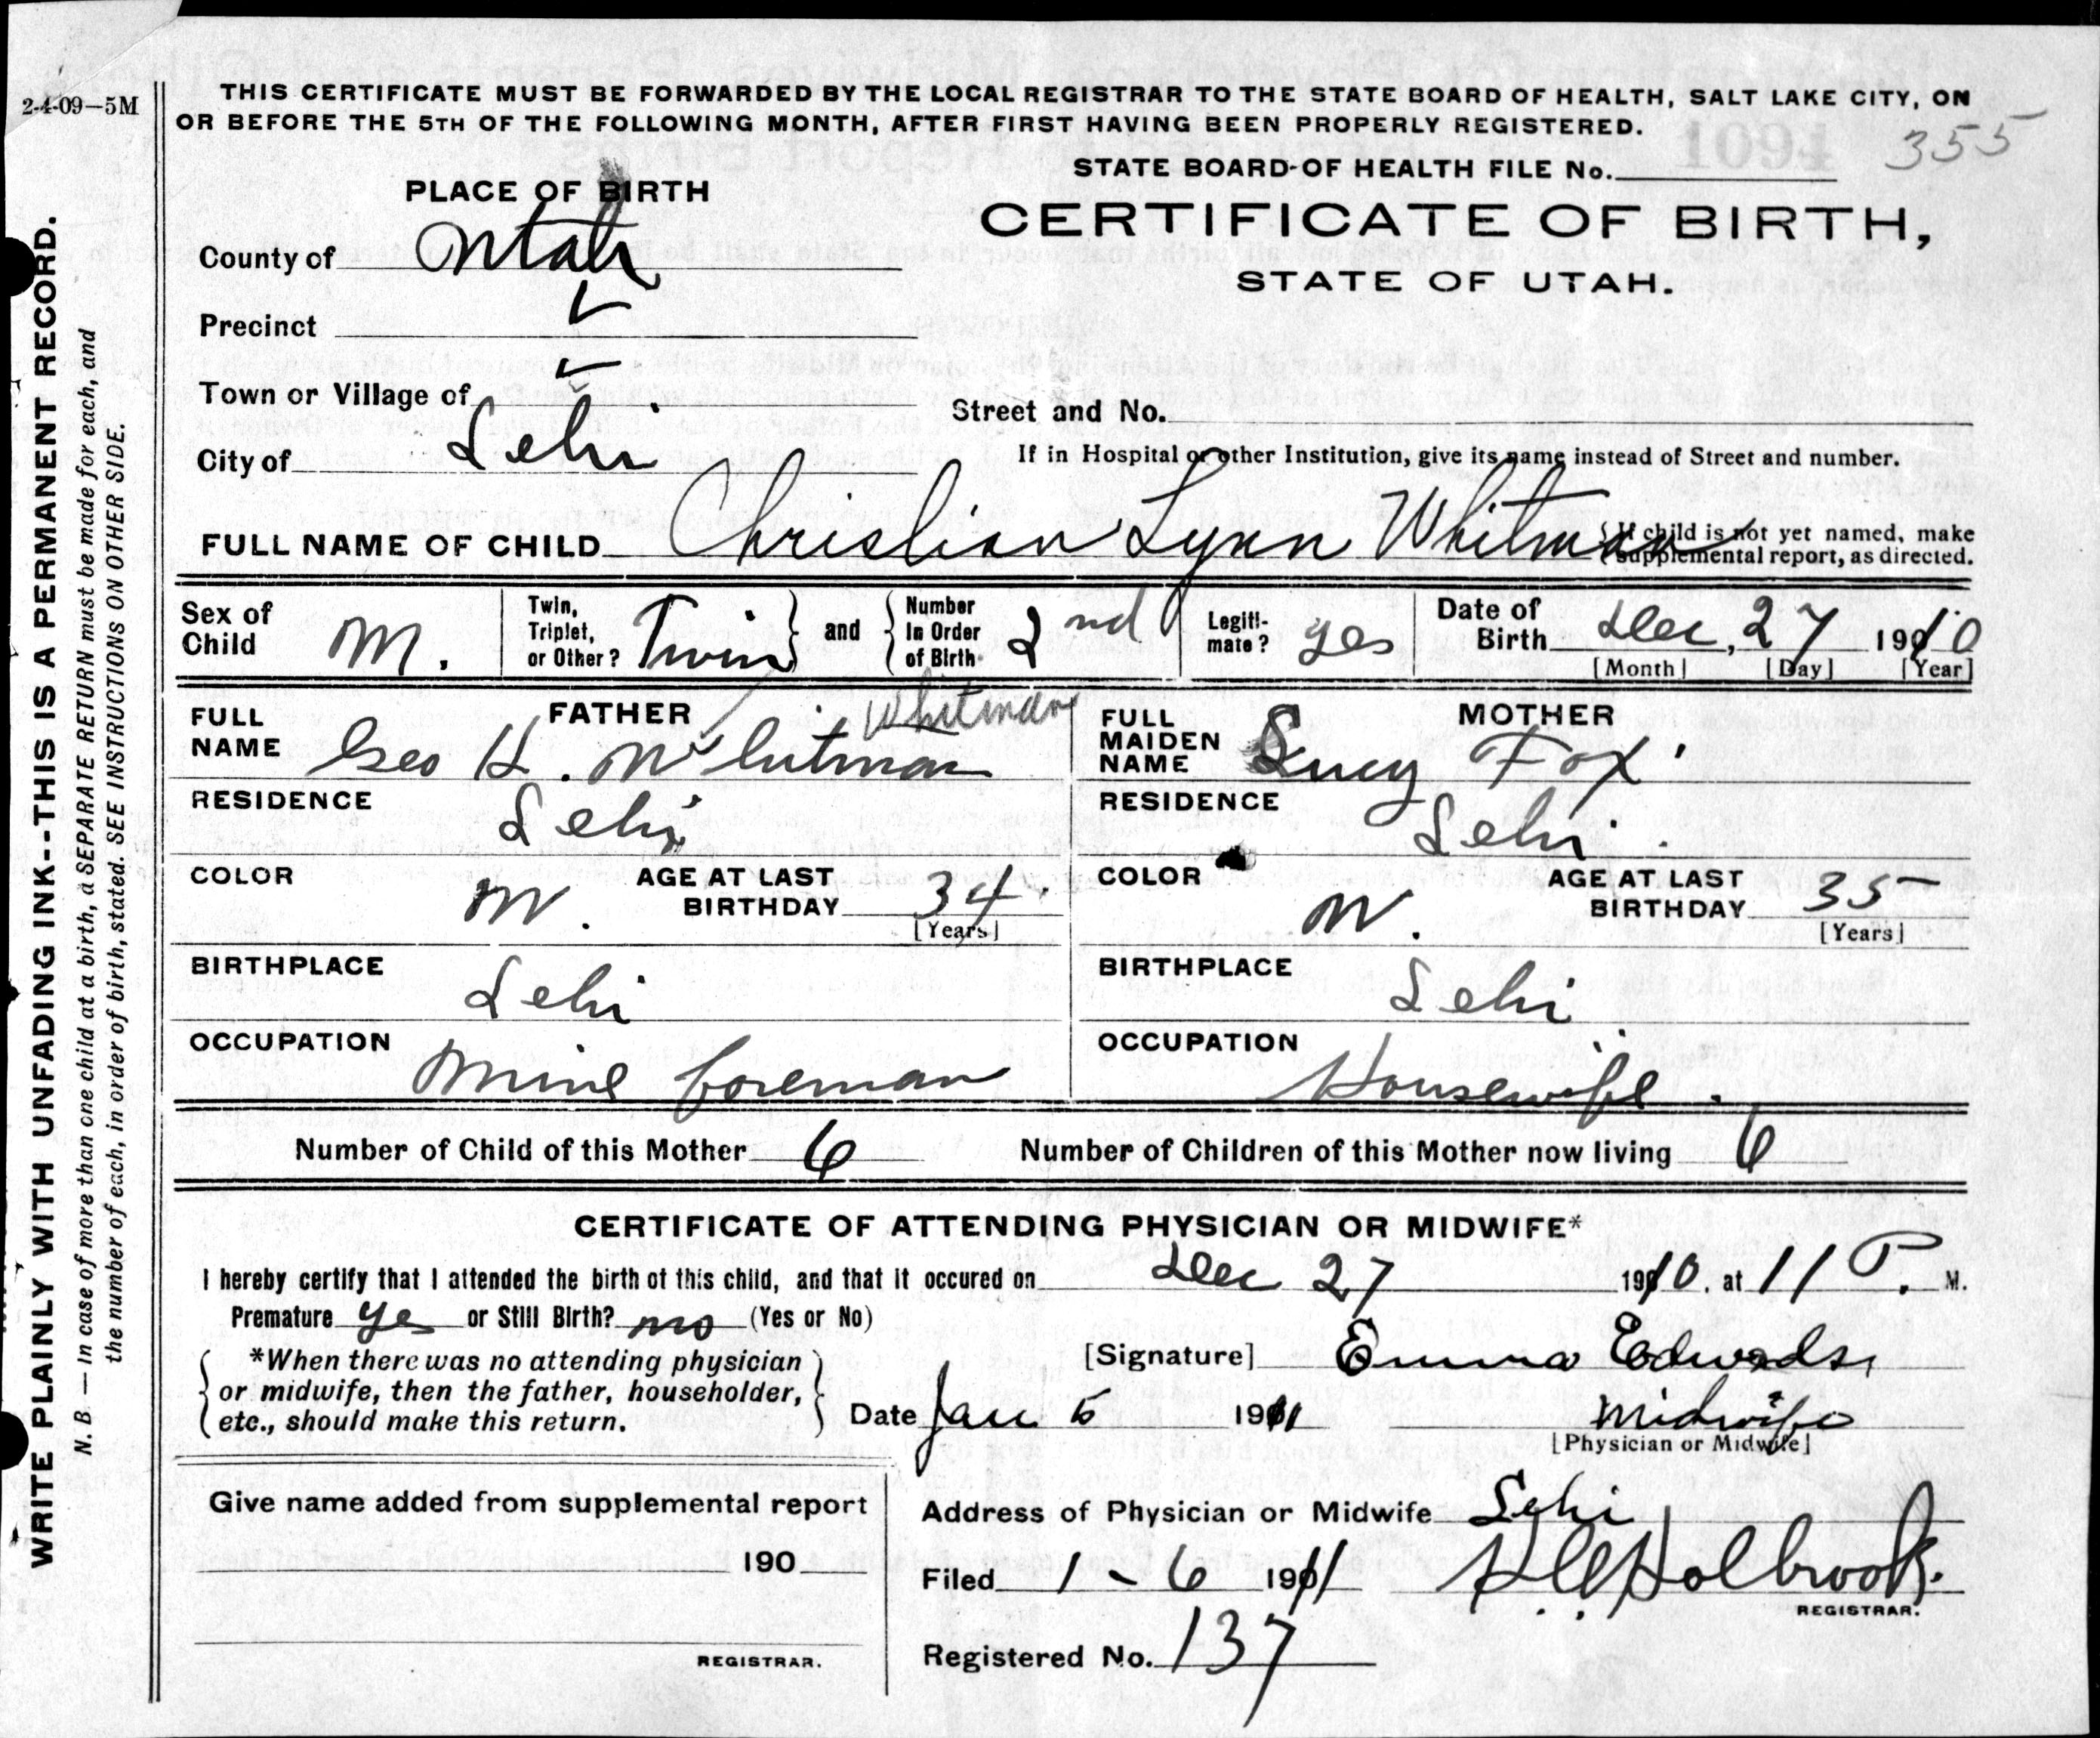 2-4-09—5M
THIS CERTIFICATE MUST BE FORWARDED BY THE LOCAL REGISTRAR TO THE STATE BOARD OF HEALTH, SALT LAKE CITY, ON
OR BEFORE THE 5TH OF THE FOLLOWING MONTH, AFTER FIRST HAVING BEEN PROPERLY REGISTERED.
1094 355
STATE BOARD OF HEALTH FILE No.
CERTIFICATE OF BIRTH,
STATE OF UTAH.
PLACE OF BIRTH
County of Utah
Precinct
Town or Village of
City of Lehi
Street and No.
If in Hospital or other Institution, give its name instead of Street and number.
FULL NAME OF CHILD Christian Lynn Whitman
If child is not yet named, make
supplemental report, as directed.
Sex of Child M.
Twin, Triplet, or Other? Twin and Number In Order of Birth 2nd
Legiti-mate? yes
Date of Birth Dec, 27 1910
[Month] [Day] [Year]
FATHER
Whitman
FULL NAME Geo H. Whitman
RESIDENCE Lehi
COLOR W. AGE AT LAST BIRTHDAY 34
[Years]
BIRTHPLACE Lehi
OCCUPATION Mine foreman
MOTHER
FULL MAIDEN NAME Lucy Fox
RESIDENCE Lehi.
COLOR W. AGE AT LAST BIRTHDAY 35
[Years]
BIRTHPLACE Lehi
OCCUPATION Housewife.
Number of Child of this Mother 6 Number of Children of this Mother now living 6
CERTIFICATE OF ATTENDING PHYSICIAN OR MIDWIFE*
I hereby certify that I attended the birth of this child, and that it occured on Dec 27 1910, at 11 P. M.
Premature yes or Still Birth? no (Yes or No)
*When there was no attending physician
or midwife, then the father, householder,
etc., should make this return.
[Signature] Emma Edwards,
Date Jan 5 1911 Midwife
[Physician or Midwife]
Give name added from supplemental report
190
REGISTRAR.
Address of Physician or Midwife Lehi
Filed 1-6 1911 Holbrook.
REGISTRAR.
Registered No. 137
WRITE PLAINLY WITH UNFADING INK--THIS IS A PERMANENT RECORD.
N. B. — In case of more than one child at a birth, a SEPARATE RETURN must be made for each, and
the number of each, in order of birth, stated. SEE INSTRUCTIONS ON OTHER SIDE.